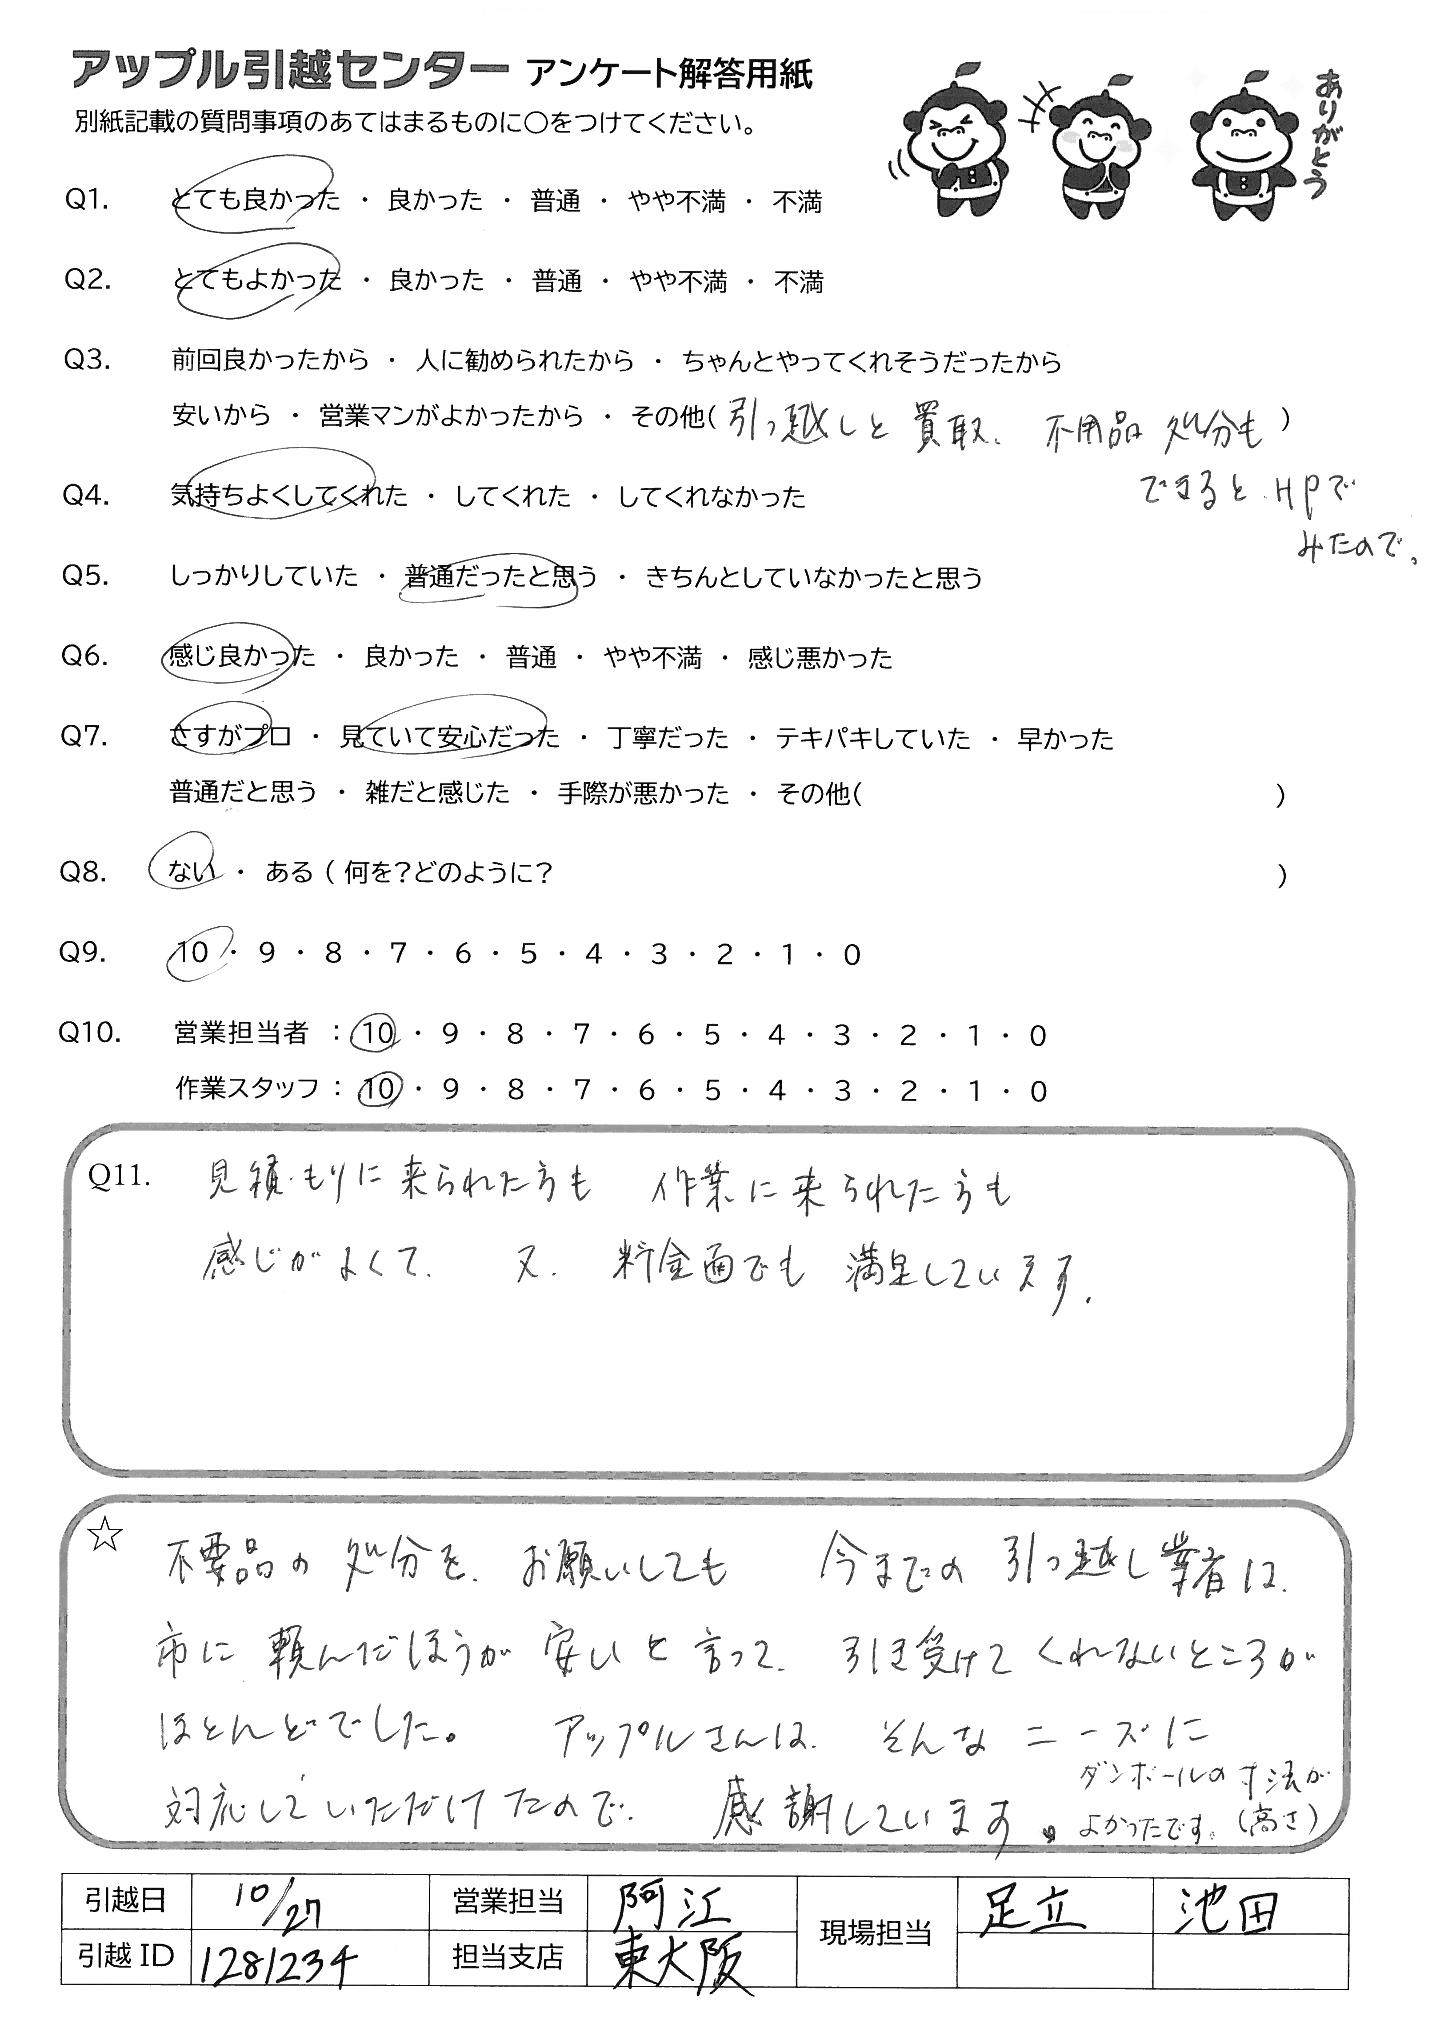 アップル引越センター アンケート解答用紙
別紙記載の質問事項のあてはまるものに○をつけてください。
ありがとう
Q1. とても良かった ・ 良かった ・ 普通 ・ やや不満 ・ 不満
Q2. とてもよかった ・ 良かった ・ 普通 ・ やや不満 ・ 不満
Q3. 前回良かったから ・ 人に勧められたから ・ ちゃんとやってくれそうだったから
安いから ・ 営業マンがよかったから ・ その他( 引っ越しと買取、不用品処分も )
できるとHPで
みたので。
Q4. 気持ちよくしてくれた ・ してくれた ・ してくれなかった
Q5. しっかりしていた ・ 普通だったと思う ・ きちんとしていなかったと思う
Q6. 感じ良かった ・ 良かった ・ 普通 ・ やや不満 ・ 感じ悪かった
Q7. さすがプロ ・ 見ていて安心だった ・ 丁寧だった ・ テキパキしていた ・ 早かった
普通だと思う ・ 雑だと感じた ・ 手際が悪かった ・ その他( )
Q8. ない ・ ある ( 何を?どのように? )
Q9. 10 ・ 9 ・ 8 ・ 7 ・ 6 ・ 5 ・ 4 ・ 3 ・ 2 ・ 1 ・ 0
Q10. 営業担当者 : 10 ・ 9 ・ 8 ・ 7 ・ 6 ・ 5 ・ 4 ・ 3 ・ 2 ・ 1 ・ 0
作業スタッフ : 10 ・ 9 ・ 8 ・ 7 ・ 6 ・ 5 ・ 4 ・ 3 ・ 2 ・ 1 ・ 0
Q11. 見積もりに来られた方も 作業に来られた方も
感じがよくて、又、料金面でも満足しています。
☆ 不要品の処分を、お願いしても 今までの引っ越し業者は、
市に頼んだほうが安いと言って、引き受けてくれないところが
ほとんどでした。 アップルさんは、そんなニーズに
対応していただけたので、感謝しています。
ダンボールの寸法が
よかったです。(高さ)
引越日 10/27 営業担当 阿江 現場担当 足立 池田
引越ID 1281234 担当支店 東大阪